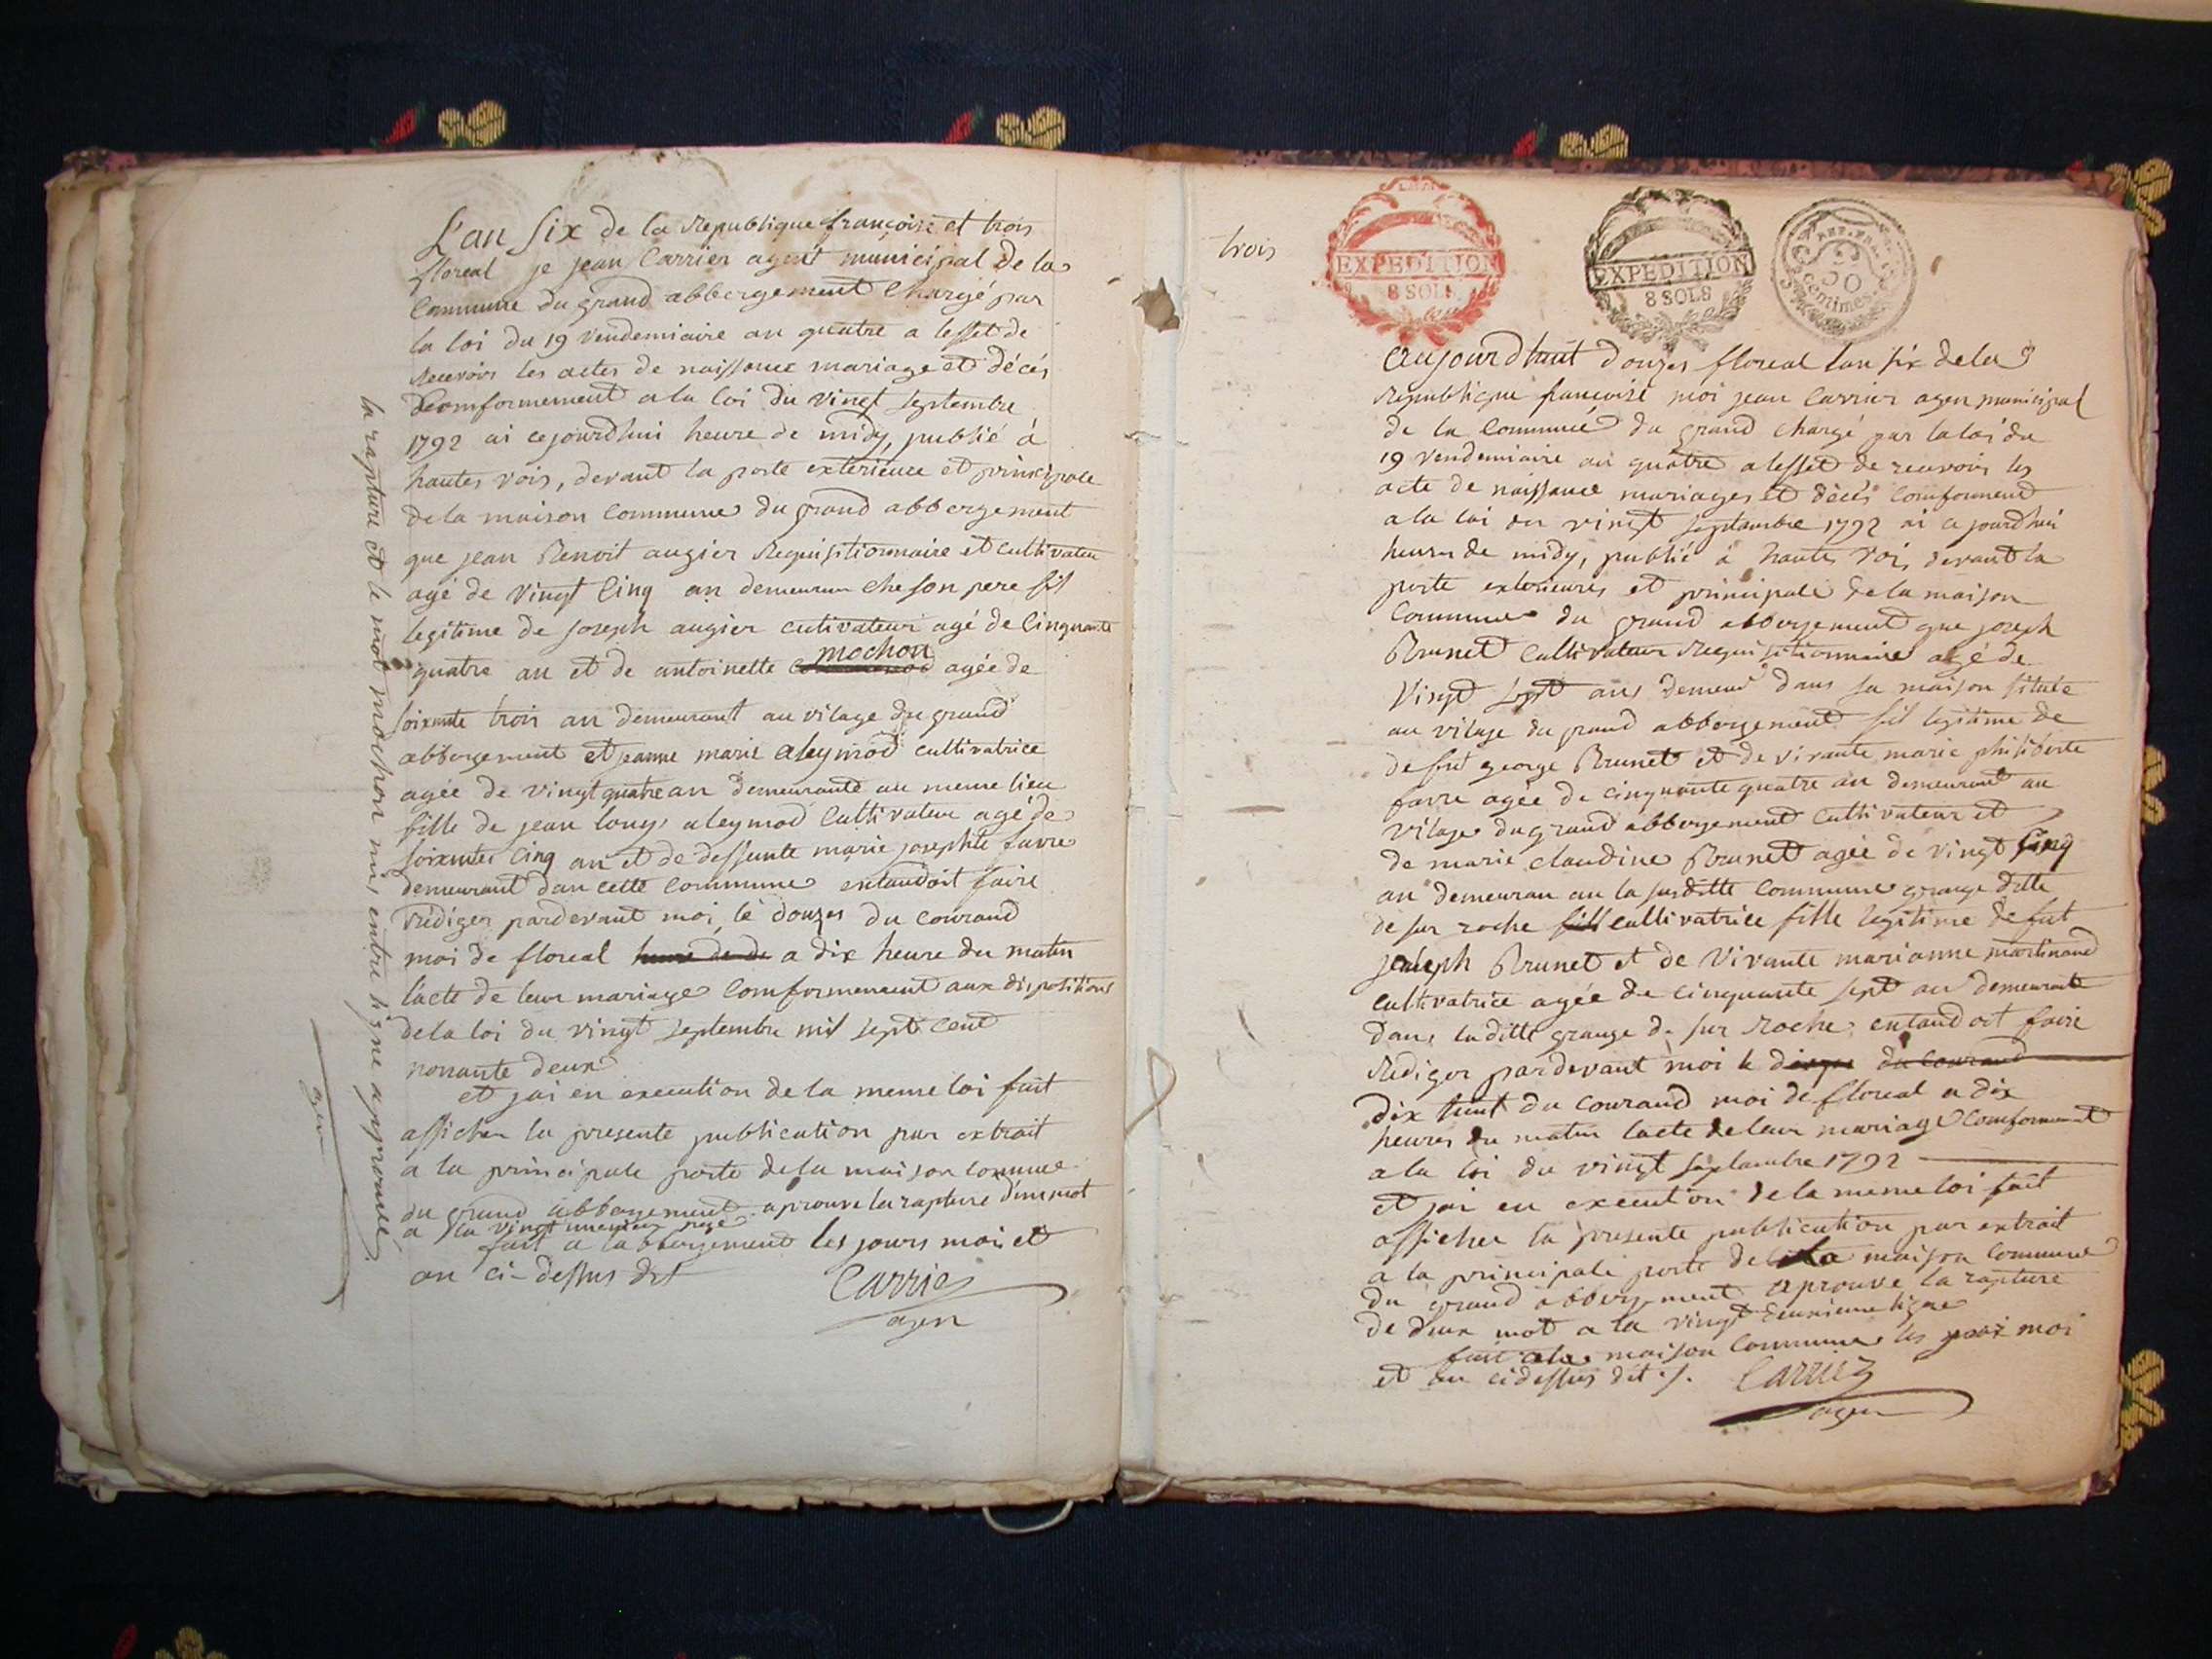 L'an six de la Republique françoise et trois
floreal je jean Carrier agent municipal de la
Commune du grand abbergement Chargé par
la loi du 19 vendemiaire an quatre a leffet de
recevoir les actes de naissance mariage et décés
comformement a la loi du vingt septembre
1792 ai cejourdhui heure de midy, publié à
hautes vois, devant la porte exterieure et principale
de la maison Commune du grand abbergement
que jean Benoit augier Requisitionnaire et cultivateu
agé de vingt Cinq an demeuran che son pere fil
legitime de joseph augier cutivateur agé de Cinquante
mochon
quatre an et de antoinette agée de
soixente trois an demeurant au vilage du grand
abbergement et jeanne marie aleymod cultivatrice
agée de vingt quatre an demeurante au meme lieu
fille de jean louys aleymod Cultivateur agé de
soixentes Cinq an et de deffunte marie josephte favre
demeurant dan cette Commune entandoit faire
Rédiger pardevant moi, le douzes du Courand
moi de floreal a dix heure du matin
lacte de leur mariage Comformement aux dispositions
de la loi du vingt septembre mil sept Cent
nonante deux
et jai en execution de la meme loi fait
afficher la presente publication par extrait
a la principale porte de la maison commune
du grand abbergement aprouve la rapture d'un mot
a la vingt page
fait a labbergement les jours moi et
an ci-dessus dit Carrier
agen
la rapture et le mot mochon mis entre ligne approuvée
agen
trois
EXPEDITION
8 SOLS
EXPEDITION
8 SOLS
REP. FRA.
50
Centimes
Aujourdhuit douzes floreal lan six de la
Republique françoise moi jean Carrier agen municipal
de la Commune du grand chargé par la loi du
19 vendemiaire an quatre a leffet de recevoir les
acte de naissance mariages et décés comforment
a la loi du vingt septambre 1792 ai cejourdhui
heures de midy, publié a hautes vois devant la
porte exterieures et principale de la maison
Commune du grand abbergement que joseph
Brunet Cultivateur Requisitionnaire agé de
vingt sept ans demeur dans sa maison située
au vilage du grand abbergement fil legitime de
de fut george Brunet et de vivante marie philiberte
favre agée de cinquante quatre an demeurant au
vilage du grand abbergement Cultivateur et
de marie claudine Brunet agée de vingt sinq
an demeuran au la susditte Commune grange ditte
de sur roche fill cultivatrice fille legitime de fut
joseph Brunet et de vivante marianne martinand
cultivatrice agée de cinquante sept an demeurante
dans laditte grange de sur Roche, entandoit faire
Rediger pardevant moi le du Courand
dix huit du courand moi de floreal a dix
heures du matin lacte de leur mariage Comformement
a la loi du vingt septambre 1792
et jai en execution de la meme loi fait
afficher la presente publication par extrait
a la principale porte de la maison Commune
du grand abbergement aprouve la rapture
de deux mot a la vingt deuxieme ligne
fait a la maison Commune les jour moi
et an cidessus dit ./. Carrier
agen